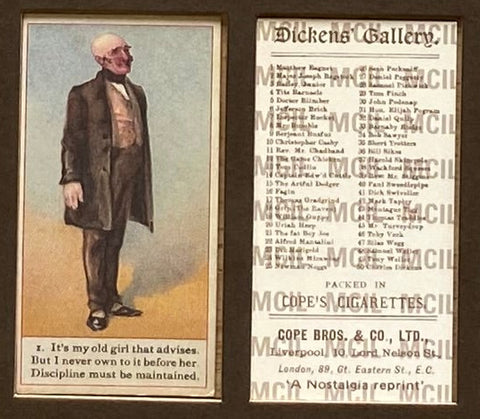 1. It's my old girl that advises.
But I never own to it before her.
Discipline must be maintained.
Dickens' Gallery.
1 Matthew Bagnet
2 Major Joseph Bagstock
3 Bailey Junior
4 Tite Barnacle
5 Doctor Blimber
6 Jefferson Brick
7 Inspector Bucket
8 Mr. Bumble
9 Serjeant Buzfuz
10 Christopher Casby
11 Rev. Mr. Chadband
12 The Game Chicken
14 Captain Edw'd Cuttle
15 The Artful Dodger
16 Fagin
17 Thomas Gradgrind
18 Grip, The Raven
19 William Guppy
20 Uriah Heep
21 The fat Boy Joe
22 Alfred Mantalini
24 Wilkins Micawber
25 Newman Noggs
26 Seth Pecksniff
27 Daniel Peggotty
28 Samuel Pickwick
29 Tom Pinch
30 John Podsnap
31 Hon. Elijah Pogram
32 Daniel Quilp
33 Barnaby Rudge
34 Bob Sawyer
36 Bill Sikes
37 Harold Skimpole
38 Wackford Squeers
39 Rev. Mr. Stiggins
40 Paul Sweedlepipe
41 Dick Swiveller
42 Mark Tapley
43 Montague Tigg
45 Mr. Turveydrop
46 Toby Veck
47 Silas Wegg
48 Samuel Weller
49 Tony Weller
50 Charles Dickens
PACKED IN
COPE'S CIGARETTES
COPE BROS. & CO., LTD.,
Liverpool, 10, Lord Nelson St.,
London, 89, Gt. Eastern St., E.C.
'A Nostalgia reprint'
MCIL